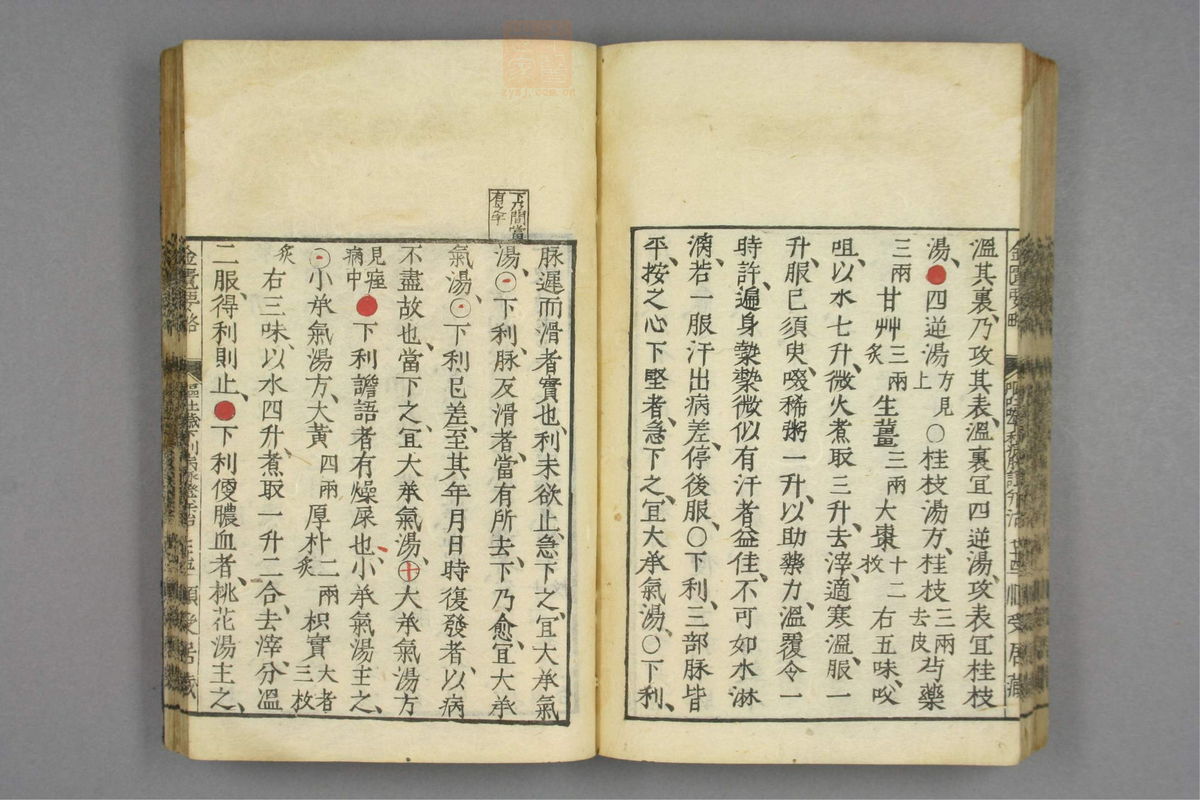 溫其裏、乃攻其表、溫裏宜四逆湯、攻表宜桂枝
湯、●四逆湯方見上○桂枝湯方、桂枝三兩去皮芍藥
三兩甘艸三兩炙生薑三兩大棗十二枚右五味、㕮
咀、以水七升、微火煮取三升、去滓、適寒溫、服一
升、服已須臾、啜稀粥一升、以助藥力、溫覆令一
時許、遍身漐漐微似有汗者益佳、不可如水淋
漓、若一服汗出病差、停後服、○下利、三部脉皆
平、按之心下堅者、急下之、宜大承氣湯、○下利、
脉遲而滑者、實也、利未欲止、急下之、宜大承氣
湯、○下利、脉反滑者、當有所去、下乃愈、宜大承
氣湯、○下利已差、至其年月日時復發者、以病
不盡故也、當下之、宜大承氣湯、十大承氣湯方
見痓病中●下利譫語者、有燥屎也、小承氣湯主之、
○小承氣湯方、大黃四兩厚朴二兩炙枳實大者三枚
炙右三味、以水四升、煮取一升二合、去滓、分溫
二服、得利則止、●下利便膿血者、桃花湯主之、
下乃間當
有之字
金匱要略
順受居藏
金匱要略
順受居藏
zysj.com.cn